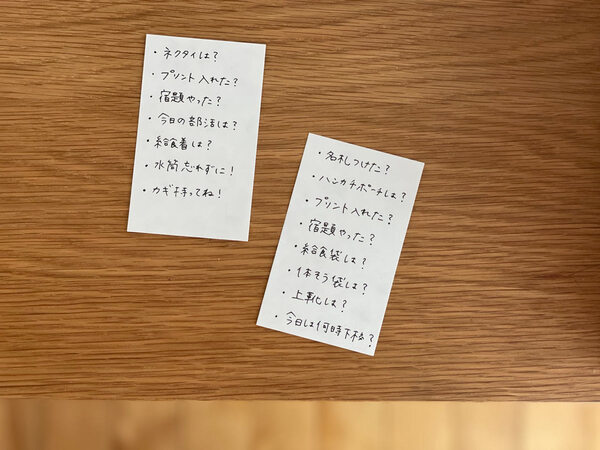 ・ネクタイは？
・プリント入れた？
・宿題やった？
・今日の部活は？
・給食着は？
・水筒忘れずに！
・カギ持ってね！
・名札つけた？
・ハンカチポーチは？
・プリント入れた？
・宿題やった？
・給食袋は？
・体そう袋は？
・上靴は？
・今日は何時下校？